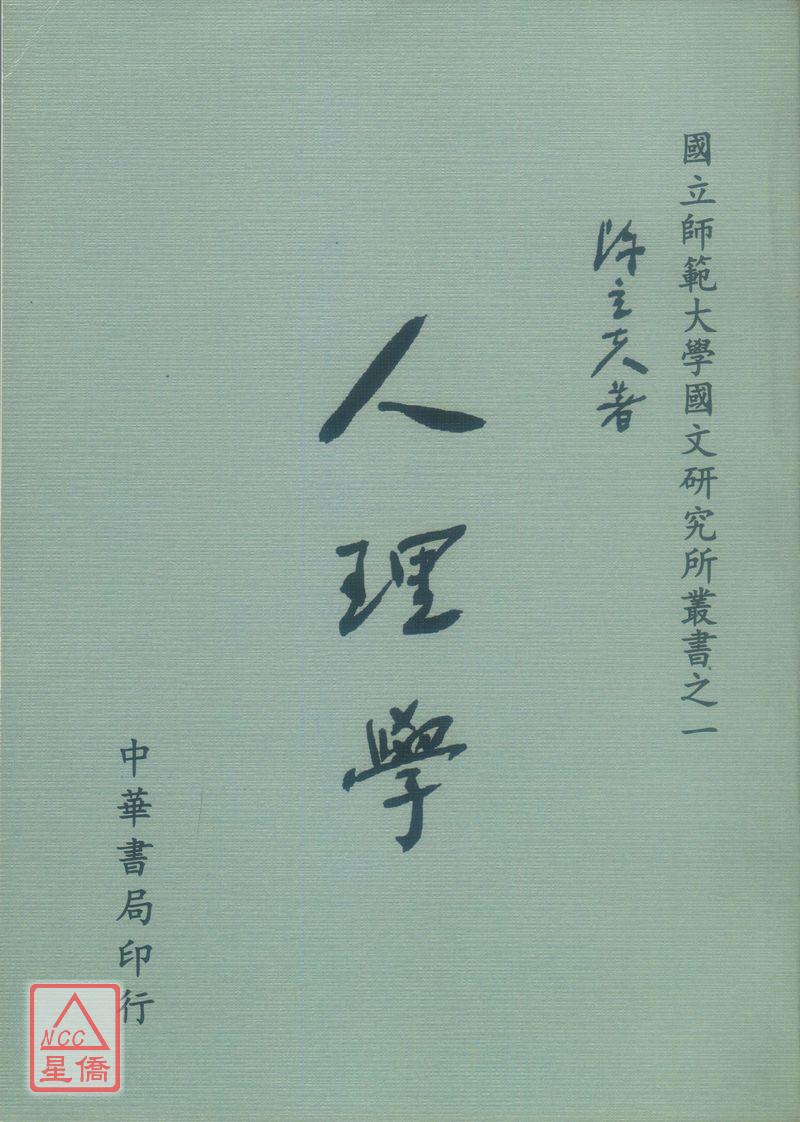 國立師範大學國文研究所叢書之一
陳立夫著
人理學
中華書局印行
NCC
星僑